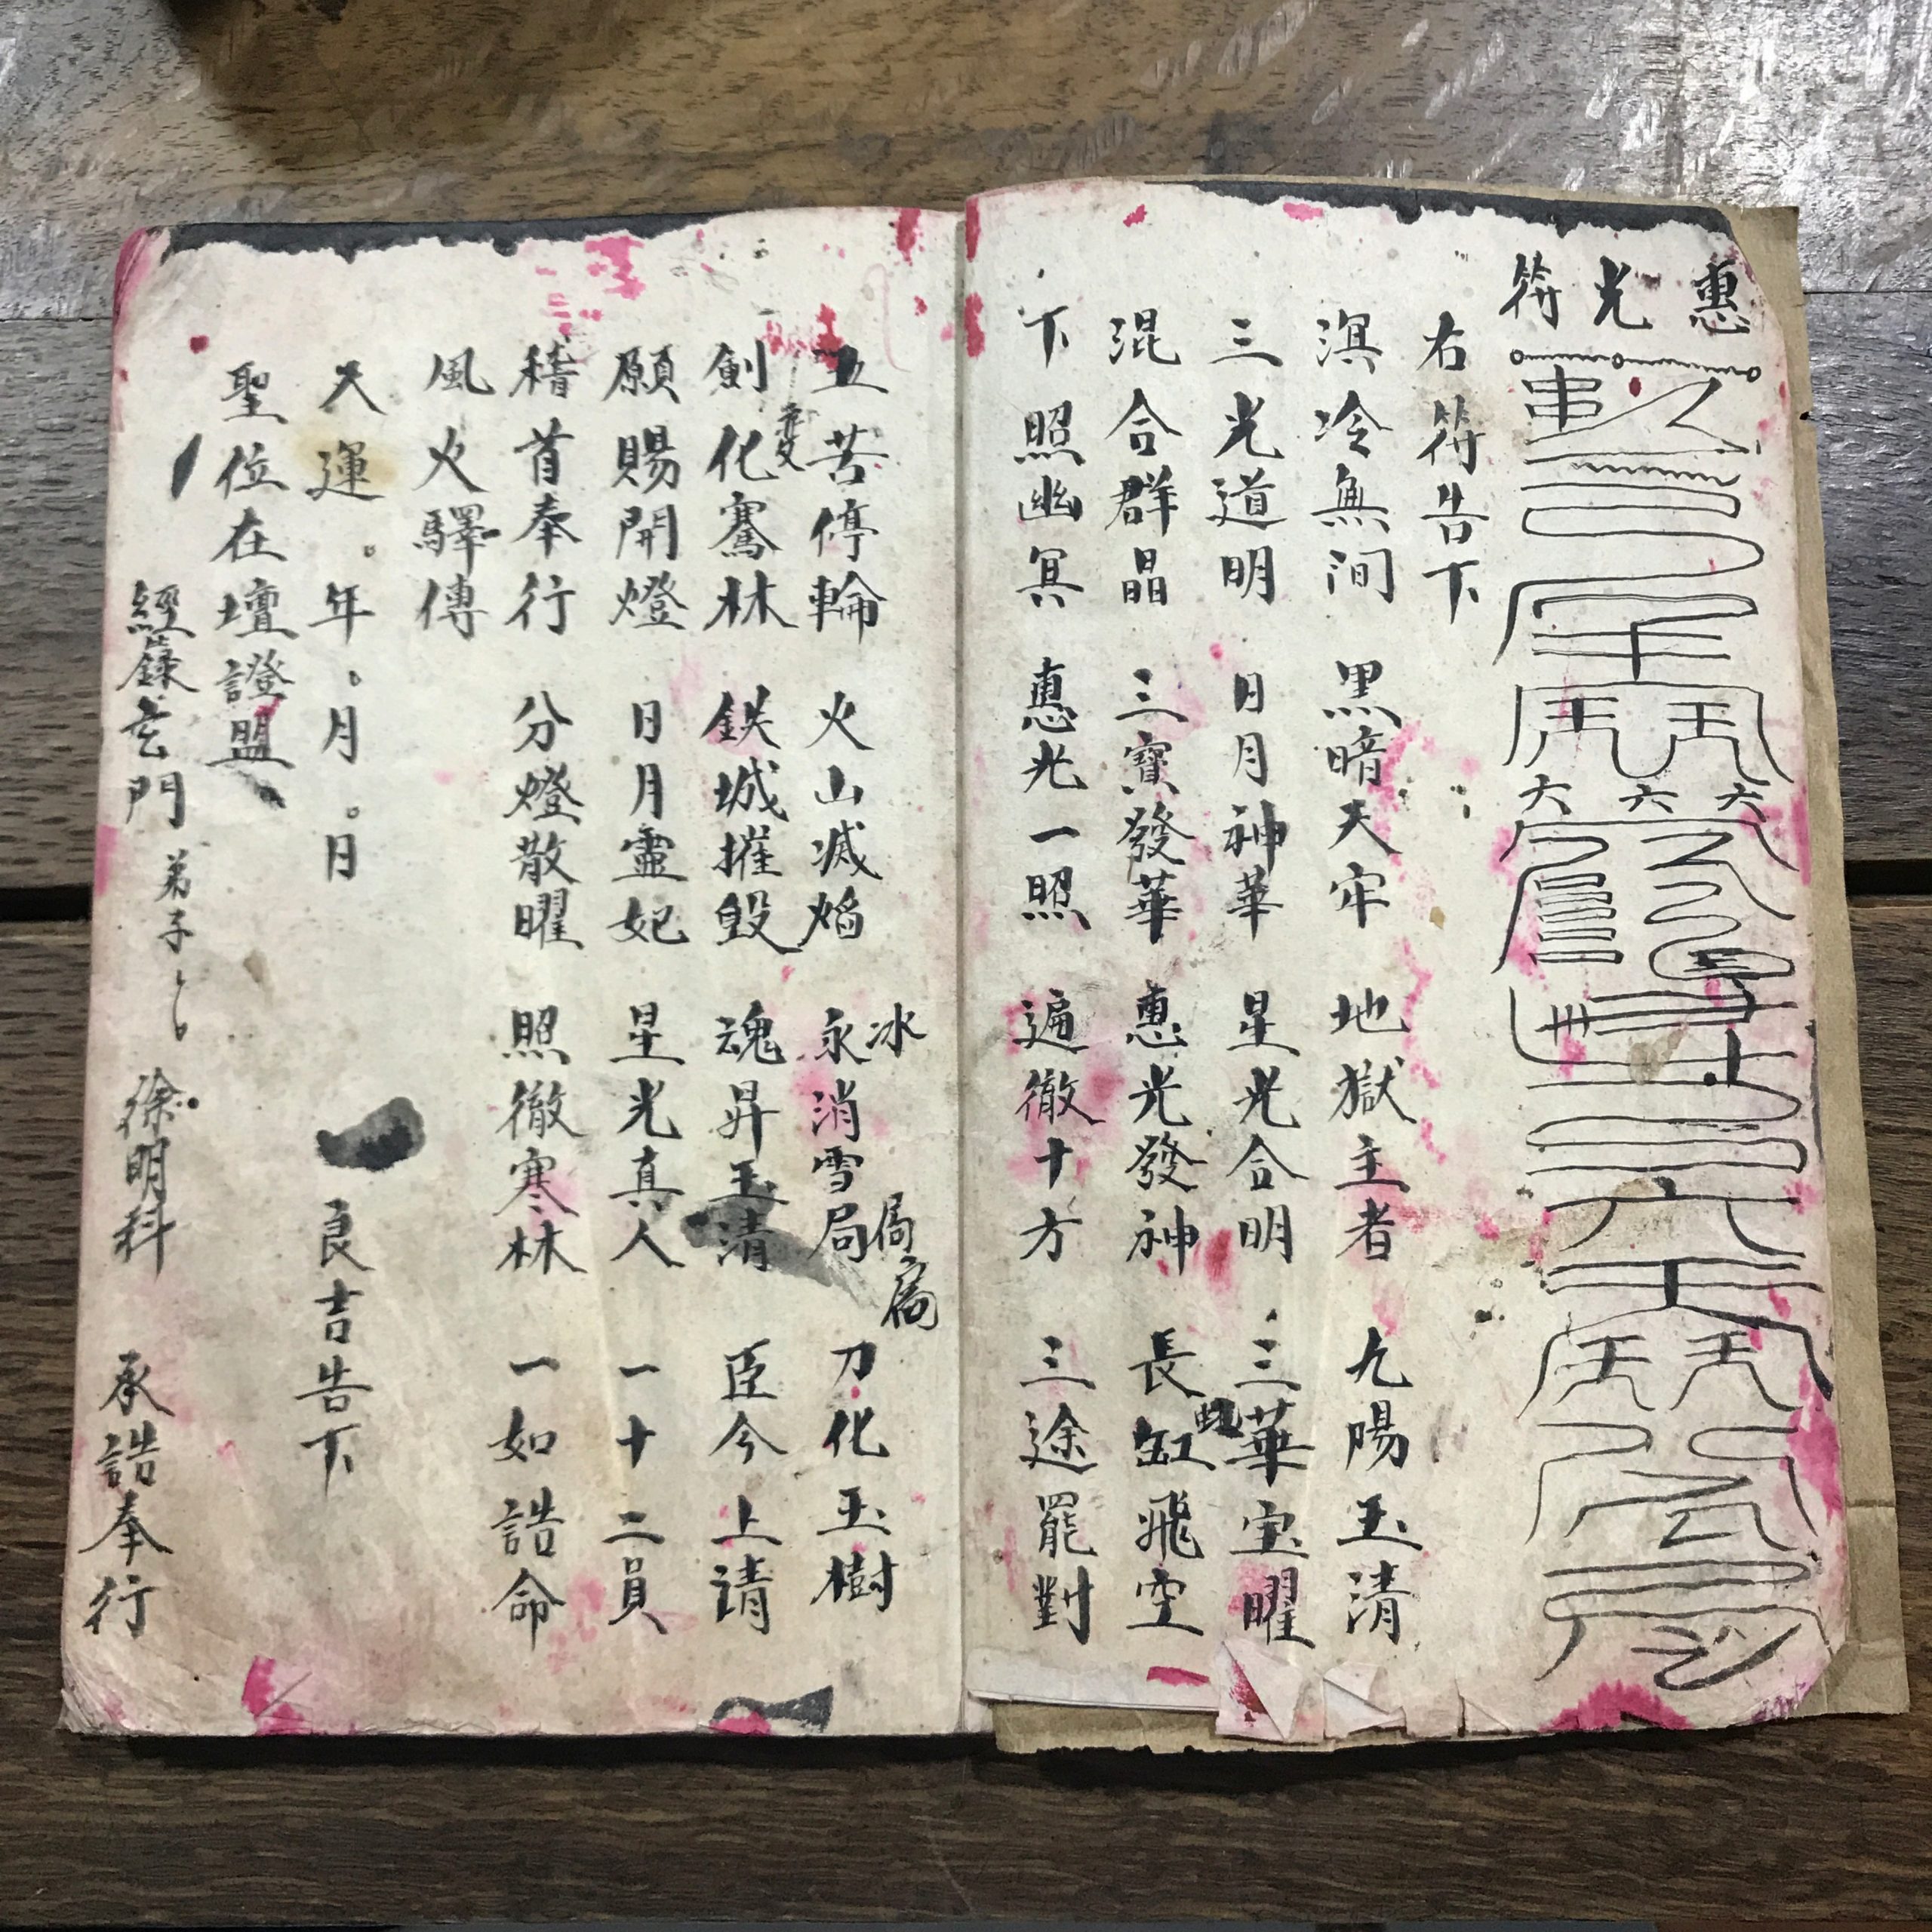 惠光符
右符告下
溟冷無间 黑暗天牢 地獄主者 九陽玉清
三光道明 日月神華 星光合明 三華宝曜
混合群晶 三寶發華 惠光發神 長缸飛空
虹
下照幽冥 惠光一照 遍徹十方 三途罷對
五苦停輪 火山滅焰 永消雪局 刀化玉樹
冰
劍化騫林 鉄城摧毀 魂昇玉清 臣今上请
变
願賜開燈 日月靈妃 星光真人 一十二員
稽首奉行 分燈散曜 照徹寒林 一如誥命
風火驛傳
天運 年 月 日 良吉告下
聖位在壇證盟
經籙玄門 弟子 徐明科 承誥奉行